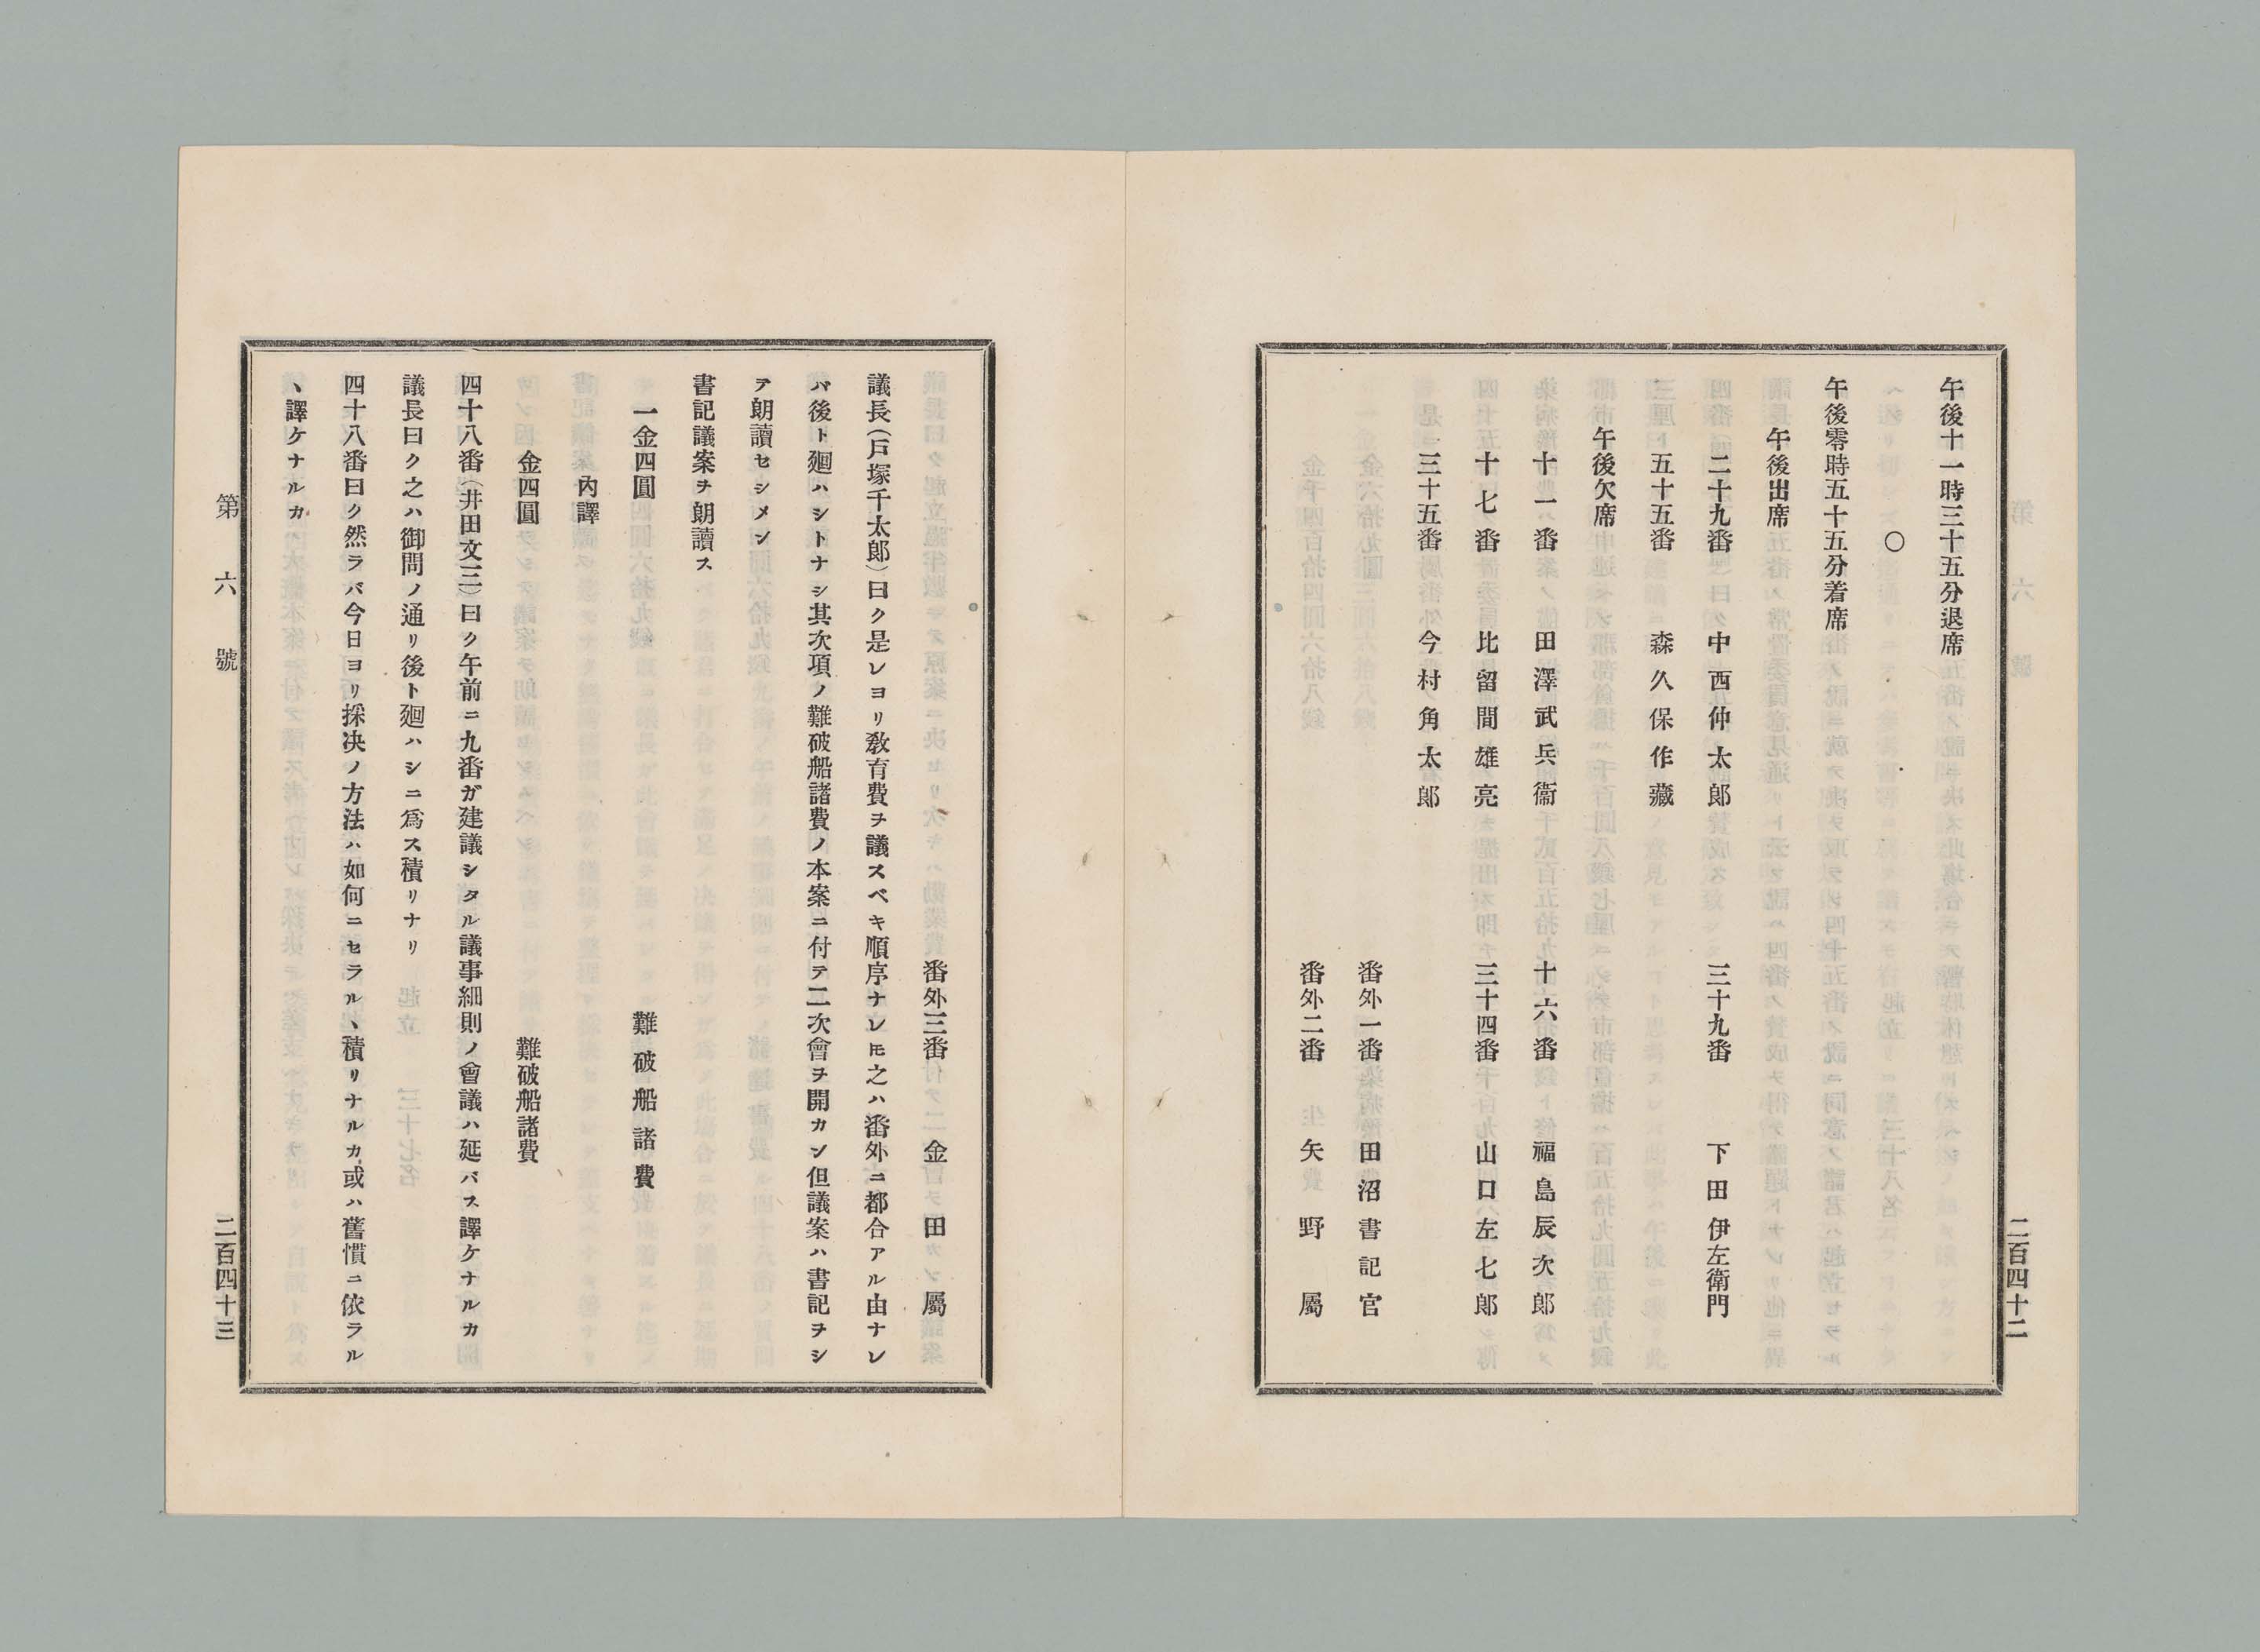 午後十一時三十五分退席
〇
午後零時五十五分着席
午後出席
二十九番 中西仲太郎 三十九番 下田伊左衛門
五十五番 森久保作藏
午後欠席
十一番 田澤武兵衞 十六番 福島辰次郎
十七番 比留間雄亮 三十四番 山口左七郎
三十五番 今村角太郎
番外一番 田沼書記官
番外二番 矢野屬
二百四十二
番外三番 金田屬
議長(戸塚千太郎)曰ク是レヨリ敎育費ヲ議スベキ順序ナレ𪜈之ハ番外ニ都合アル由ナレ
バ後ト廻ハシトナシ其次項ノ難破船諸費ノ本案ニ付テ二次會ヲ開カン但議案ハ書記ヲシ
テ朗讀セシメン
書記議案ヲ朗讀ス
一金四圓 難破船諸費
內譯
金四圓 難破船諸費
四十八番(井田文三)曰ク午前ニ九番ガ建議シタル議事細則ノ會議ハ延バス譯ケナルカ
議長曰ク之ハ御問ノ通リ後ト廻ハシニ爲ス積リナリ
四十八番曰ク然ラバ今日ヨリ採决ノ方法ハ如何ニセラルヽ積リナルカ或ハ舊慣ニ依ラル
ヽ譯ケナルカ
第六號 二百四十三